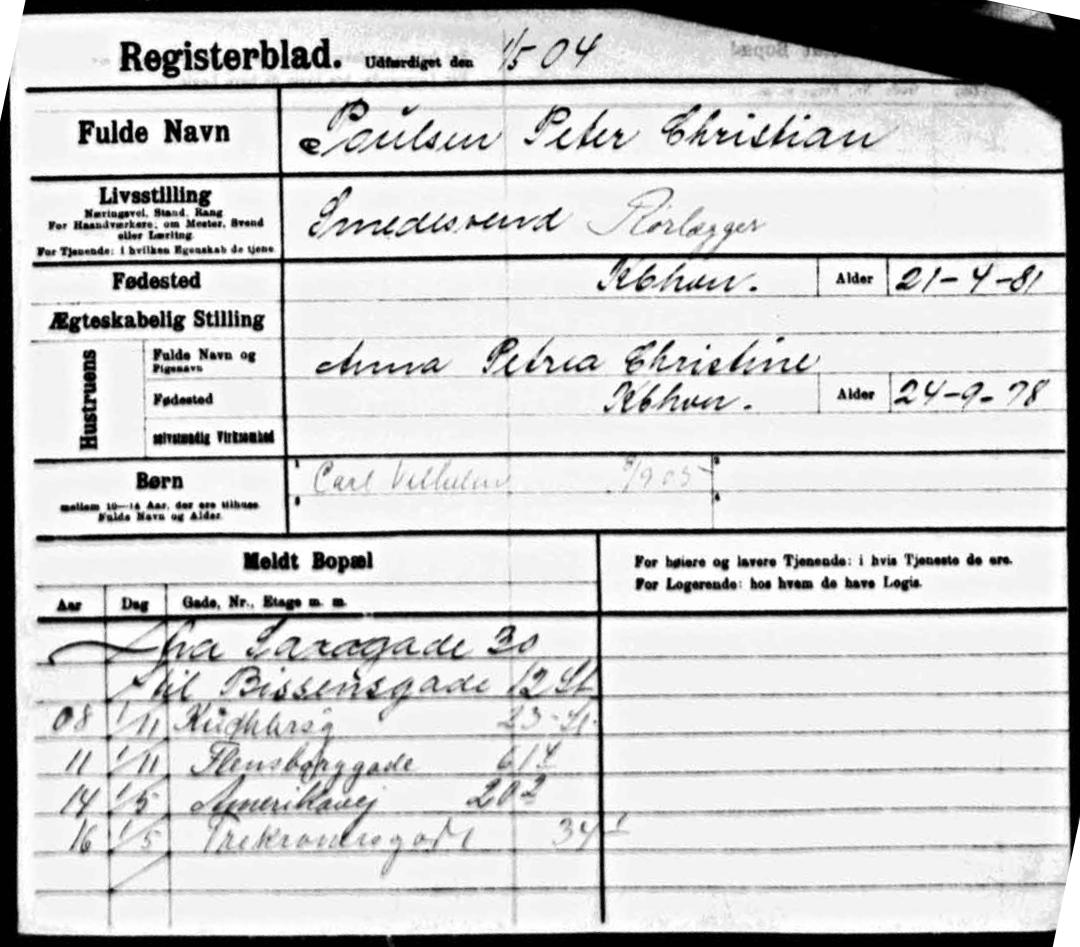 Registerblad. Udfærdiget den 1/5 04
Fulde Navn Poulsen Peter Christian
Livsstilling
Næringsvej, Stand, Rang
For Haandværkere, om Mester, Svend
eller Lærling.
For Tjenende: i hvilken Egenskab de tjene
Smedesvend Rørlægger
Fødested Kbhvn. Alder 21-4-81
Ægteskabelig Stilling
Hustruens
Fulde Navn og
Pigenavn
Anna Petrea Christine
Fødested Kbhvn. Alder 24-9-78
selvstændig Virksomhed
Børn
mellem 10-14 Aar, der ere tilhuse
Fulde Navn og Alder.
1 Carl Vilhelm /9 05 2
3 4
Meldt Bopæl
For høiere og lavere Tjenende: i hvis Tjeneste de ere.
For Logerende: hos hvem de have Logis.
Aar Dag Gade, Nr., Etage m. m.
fra Saxogade 30
til Bissensgade 12 St
08 1/11 23 St.
11 1/11 Flensborggade 61 4
14 1/5 Amerikavej 20 2
16 1/5 Trekronersgade 34 1